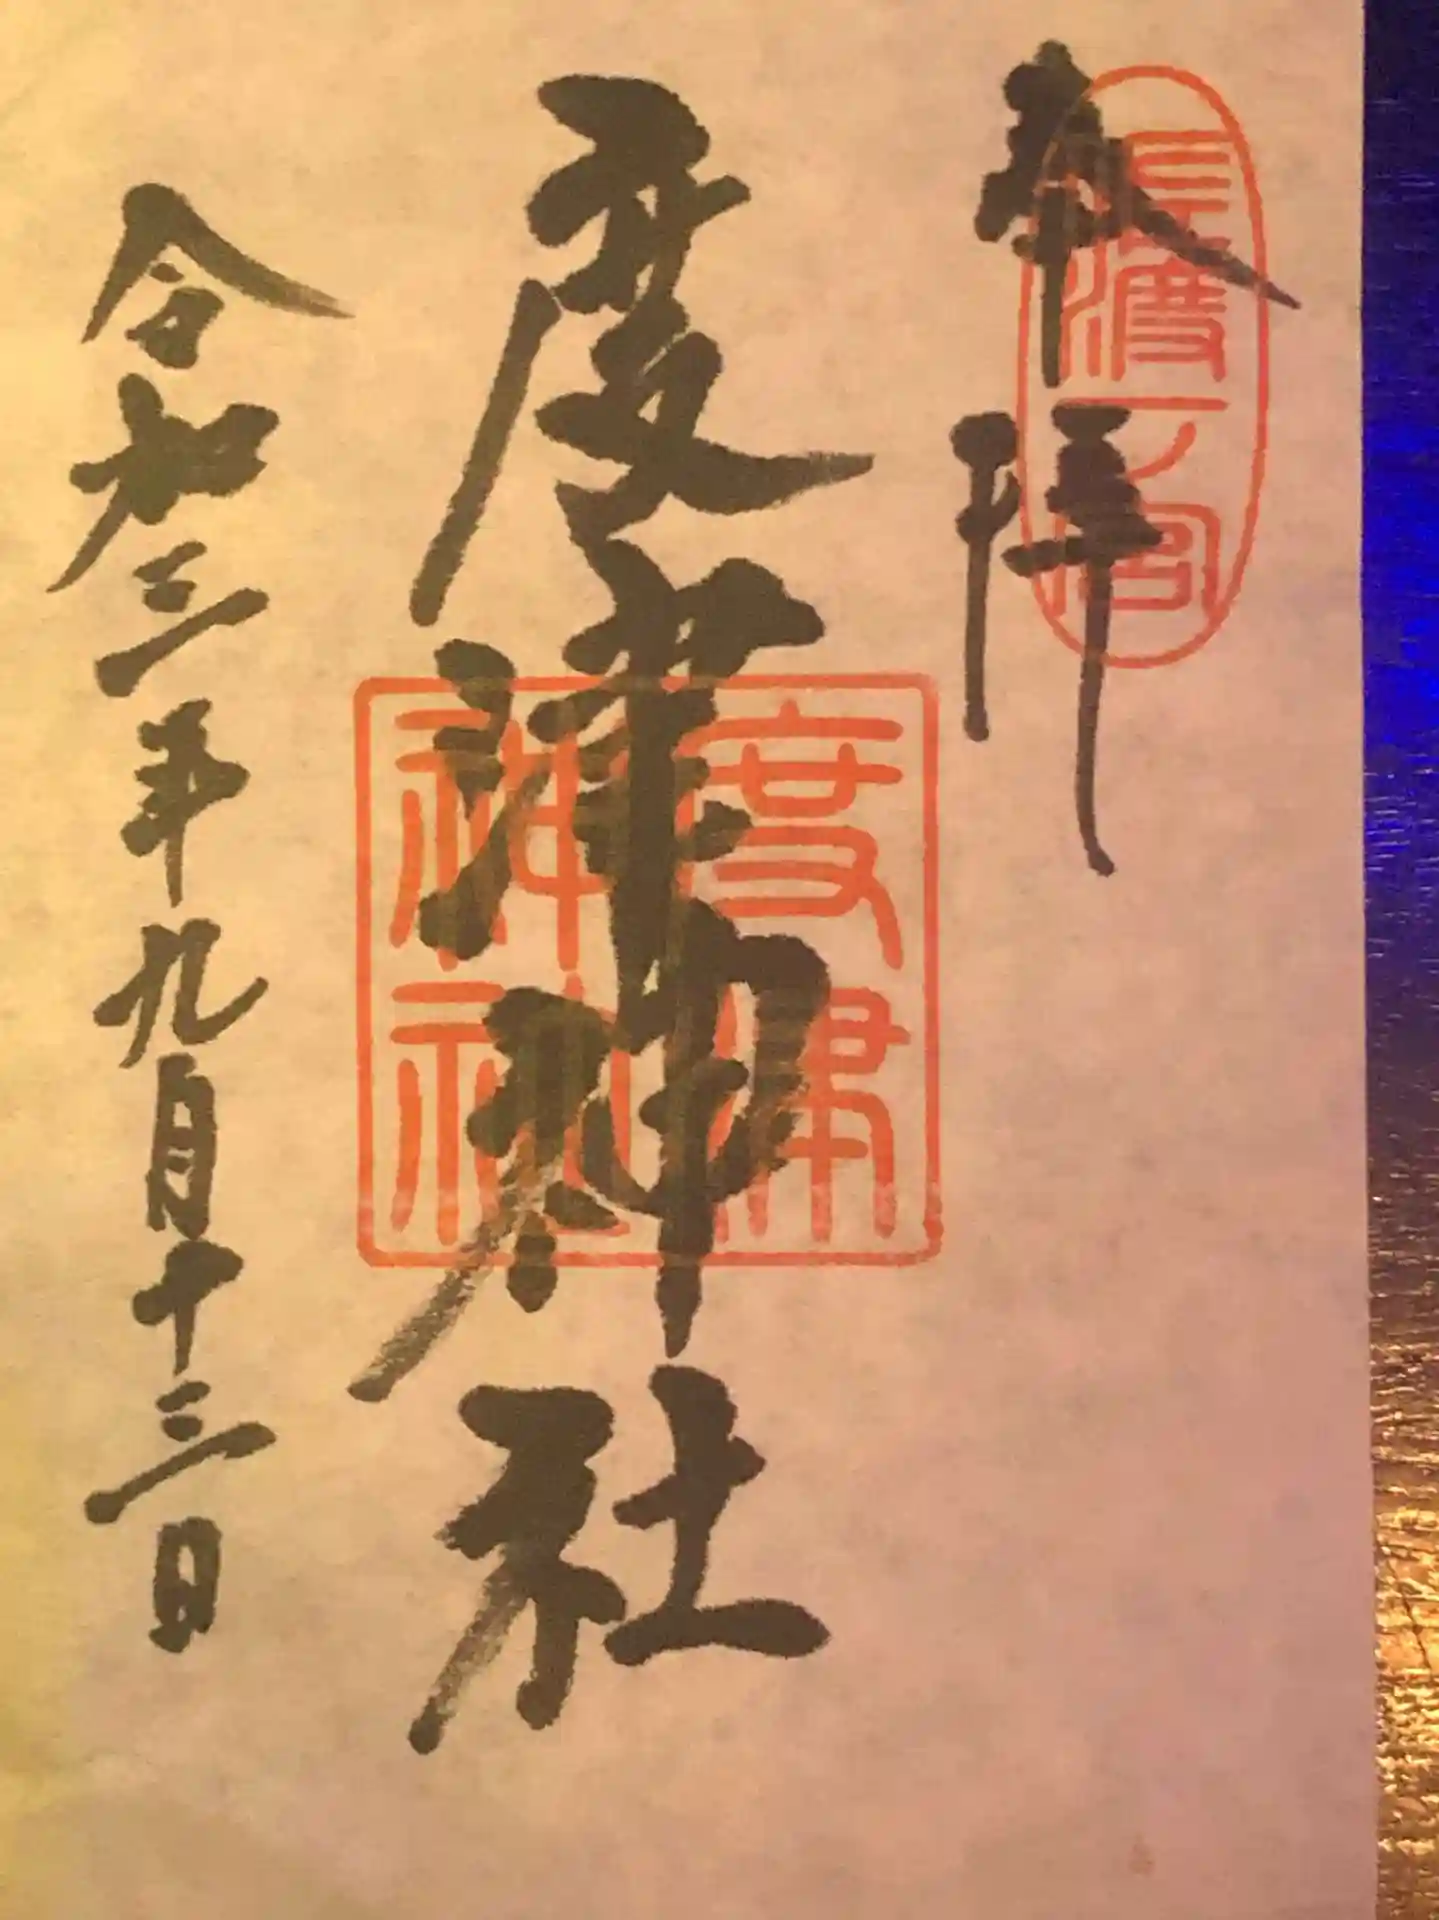 奉拝
佐渡一ノ宮
度津神社
度津
神社
令和三年九月十三日